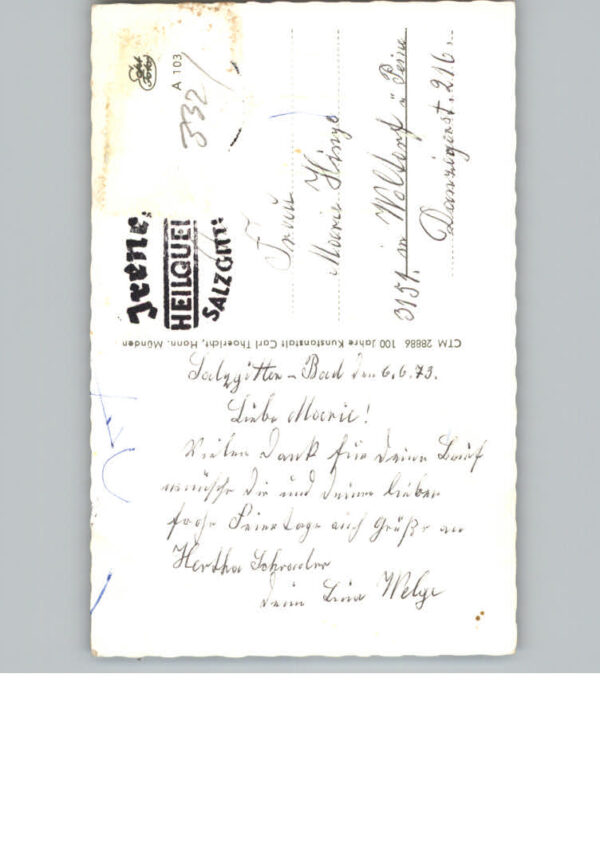 A 103
332
Irene,
HEILQUEL
SALZGITT
Frau
Marie Hinze
3151 in Woltorf ü Peine
Danzigerst. 216
CTM 28886 100 Jahre Kunstanstalt Carl Thoericht, Hann. Münden
Salzgitter-Bad den 6.6.73.
Liebe Marie!
Vielen Dank für deinen Brief
wünsche Dir und deinen lieben
frohe Feiertage auch Grüße an
Hertha Schrader
deine Lina Welge